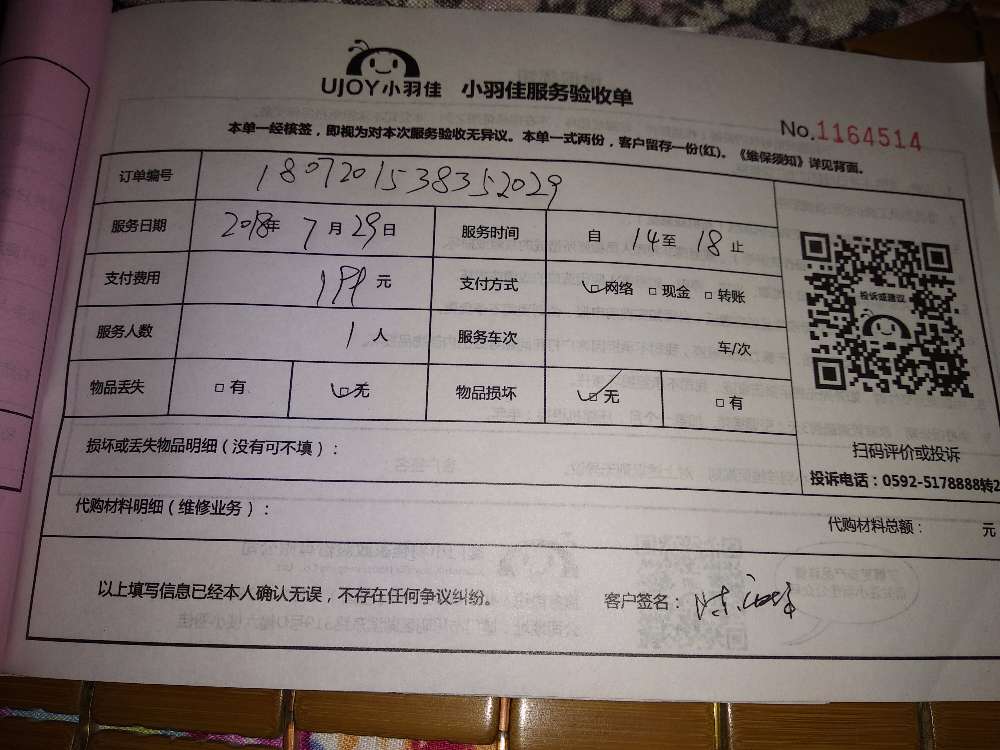 UJOY小羽佳 小羽佳服务验收单
No.1164514
本单一经核签，即视为对本次服务验收无异议。本单一式两份，客户留存一份(红)。《维保须知》详见背面。
订单编号 1807201538352029
服务日期 2018年 7月29日 服务时间 自 14至 18止
支付费用 199元 支付方式 网络 现金 转账
服务人数 1人 服务车次 车/次
物品丢失 有 无 物品损坏 无 有
投诉或建议
扫码评价或投诉
投诉电话：0592-5178888转2
损坏或丢失物品明细（没有可不填）：
代购材料明细（维修业务）：
代购材料总额： 元
以上填写信息已经本人确认无误，不存在任何争议纠纷。 客户签名：